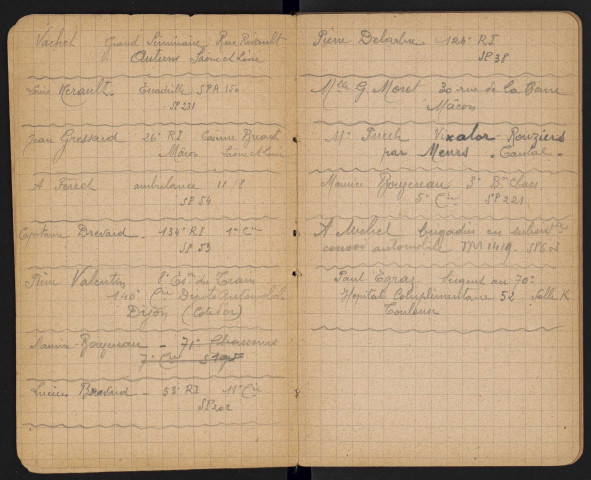 Vachet Grand Séminaire Rue
Autun Saône et Loire
Louis Herault. Escadrille SPA 150
SP 231
Jean Grossard 26e RI Caserne
Mâcon Saône et Loire
A Forech ambulance 11/8
SP 54
Capitaine Drevard - 134e RI 1ere Cie
SP 53
Rémi Valentin 8e Esc du Train
140e Cie Dépôt Automobile
Dijon (Côte d'or)
Maurice Bougereau - 71e Chasseurs
7e Cie
Lucien - 53e RI 11e Cie
SP 202
Pierre Delorbe 124e RI
SP 38
Mlle G. Moret 30 rue de la Barre
Mâcon
Mr Pirech Vixalor - Rouziers
par Meurs. Cantal -
Maurice Bougereau 3e Bon Chas
5e Cie SP 221
A Michel brigadier en
convoi automobile TM 1419. SP
Paul Egraz sergent au 70e
Hopital Complémentaire 52 Salle K
Toulouse